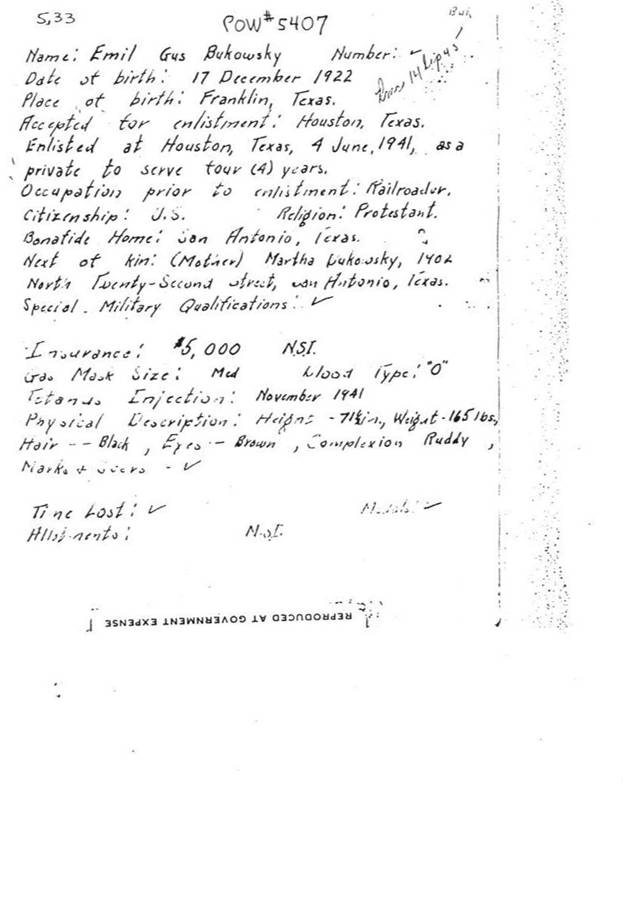 5,33
POW#5407
Buk
Name: Emil Gus Bukowsky Number: ✓
Date of birth: 17 December 1922
Place of birth: Franklin, Texas.
Accepted for enlistment: Houston, Texas.
Enlisted at Houston, Texas, 4 June, 1941, as a
private to serve four (4) years.
Occupation prior to enlistment: Railroader.
Citizenship: U.S. Religion: Protestant.
Bonafide Home: San Antonio, Texas.
Next of kin: (Mother) Martha Bukowsky, 1402
North Twenty-Second Street, San Antonio, Texas.
Special. Military Qualifications: ✓
Insurance: $5,000 N.S.I.
Gas Mask Size: Med Blood Type: "O"
Tetanus Injection: November 1941
Physical Description: Height - 71½in., Weight-165 lbs,
Hair -- Black, Eyes -- Brown, Complexion Ruddy,
Marks & Scars - ✓
Time Lost: ✓ ✓
Allotments: N.S.I.
REPRODUCED AT GOVERNMENT EXPENSE